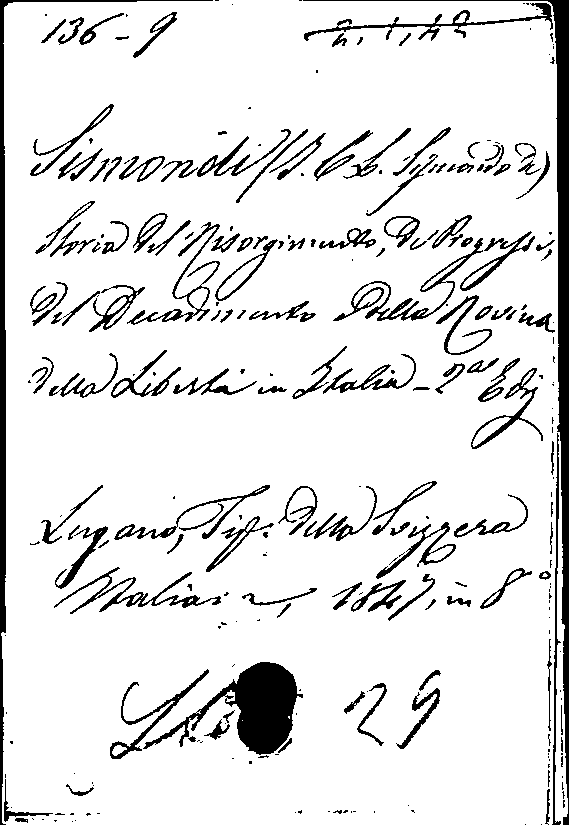 136-9 2.1.42
Sismondi (J. C. L. Simondo de)
Storia del Risorgimento, de' Progressi,
del Decadimento e della Rovina
della Libertà in Italia - 2ª Ediz
Lugano, Tip: della Svizzera
Italiana, 1847, in 8°
29